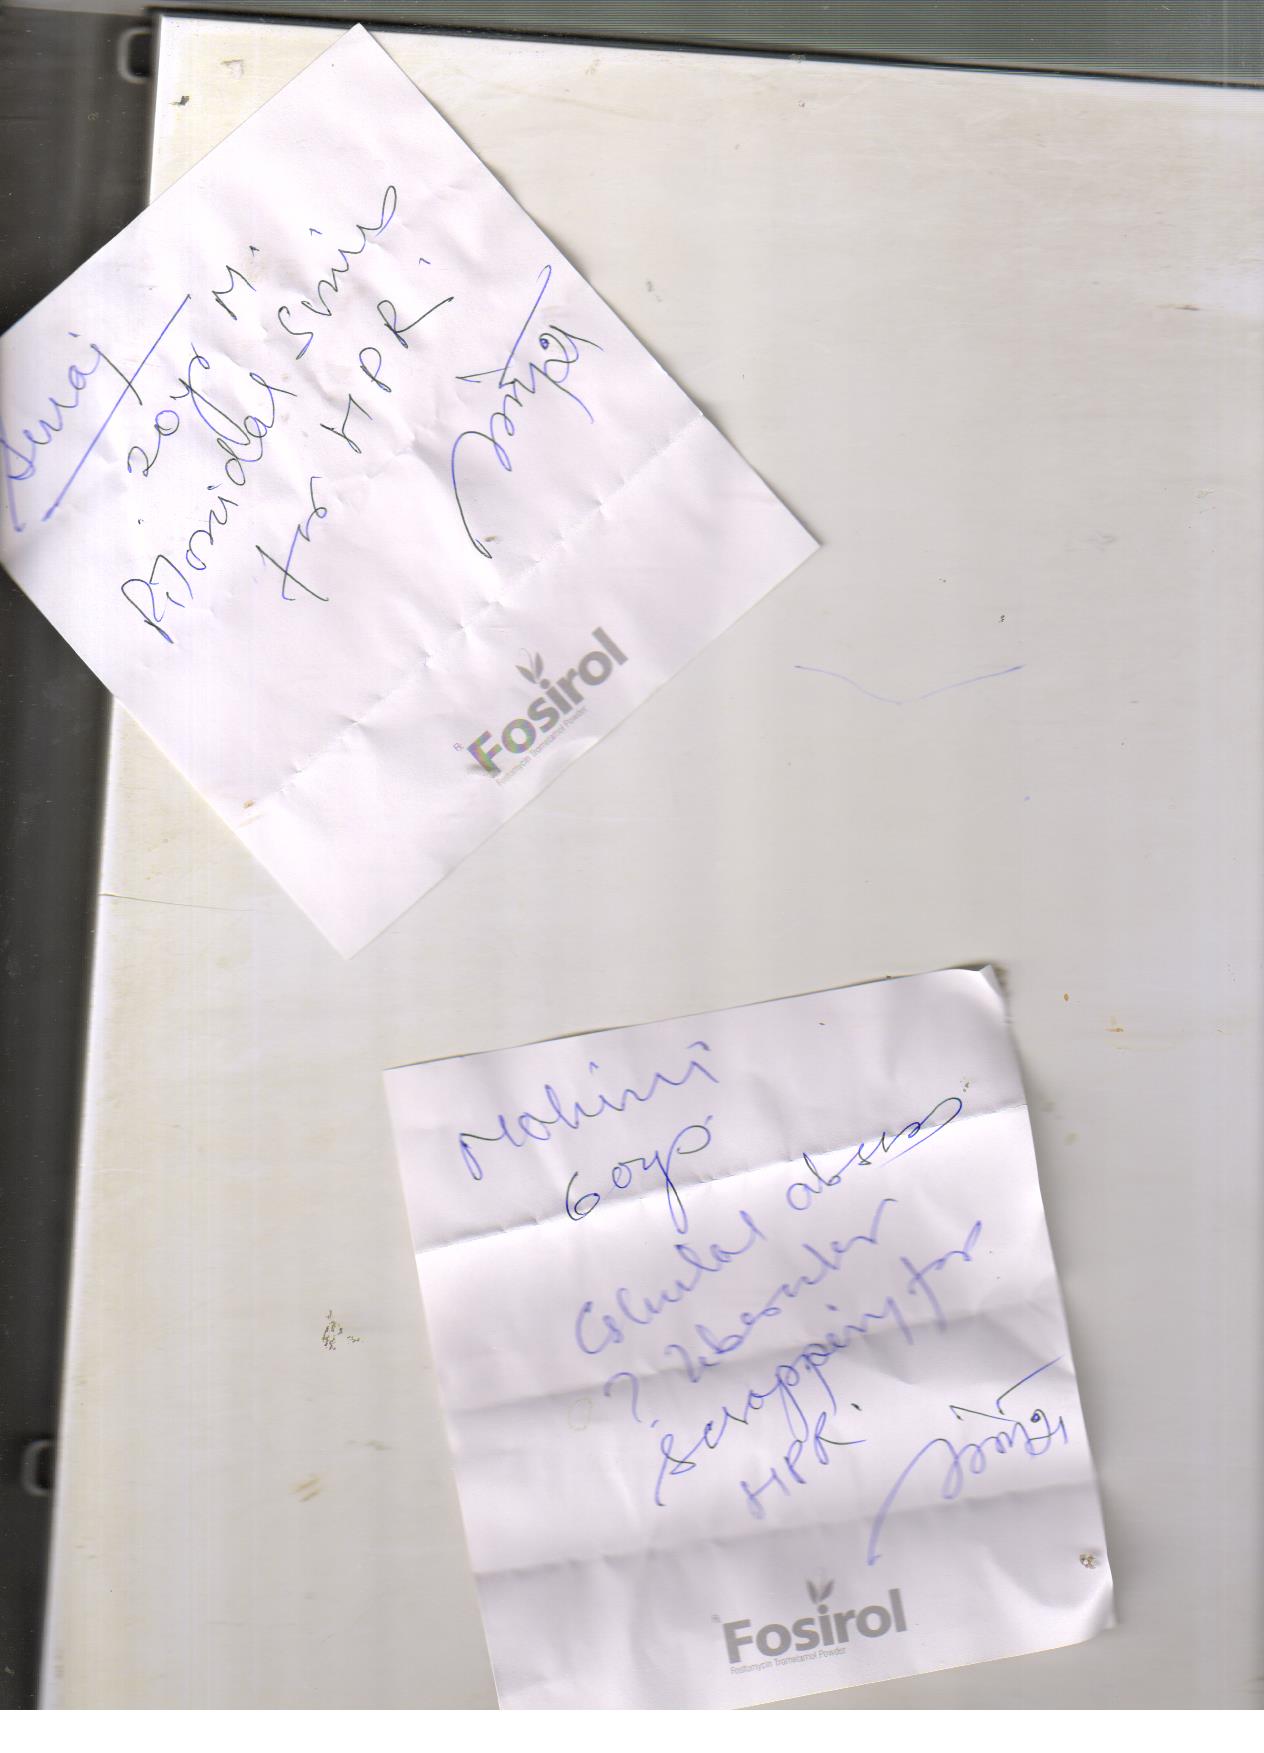 Suraj
20yr M.
Pilonidal Sinus
for HPR.
Fosirol
Fosfomycin Trometamol Powder
Mohini
60yr
abscess
? tubercular
Scrapping for
HPR.
Fosirol
Fosfomycin Trometamol Powder